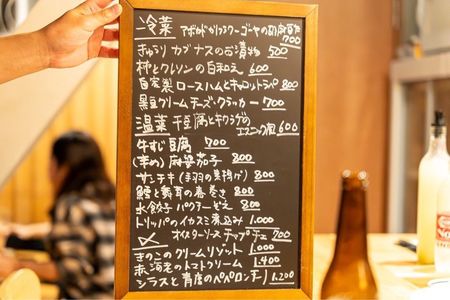 冷菜 アボカド クリームチーズ ゴーヤの
700
きゅうり カブ ナスのお漬物 500
柿とクレソンの白和え 600
自家製 ロースハムとキャロットラペ 800
黒豆クリームチーズ・クラッカー 700
温菜 干豆腐とキクラゲの
エスニック風 600
牛すじ豆腐 700
(辛め) 麻婆茄子 800
サンテキ (手羽の 揚げ) 800
鱈と舞茸の春巻き 800
水餃子 パクチーどえ 800
トリッパのイカスミ煮込み 1.000
オイスターソース チャプチェ 700
〆
きのこのクリームリゾット 1.000
赤海老のトマトクリーム 1.400
シラスと青唐のペペロンチーノ 1.200